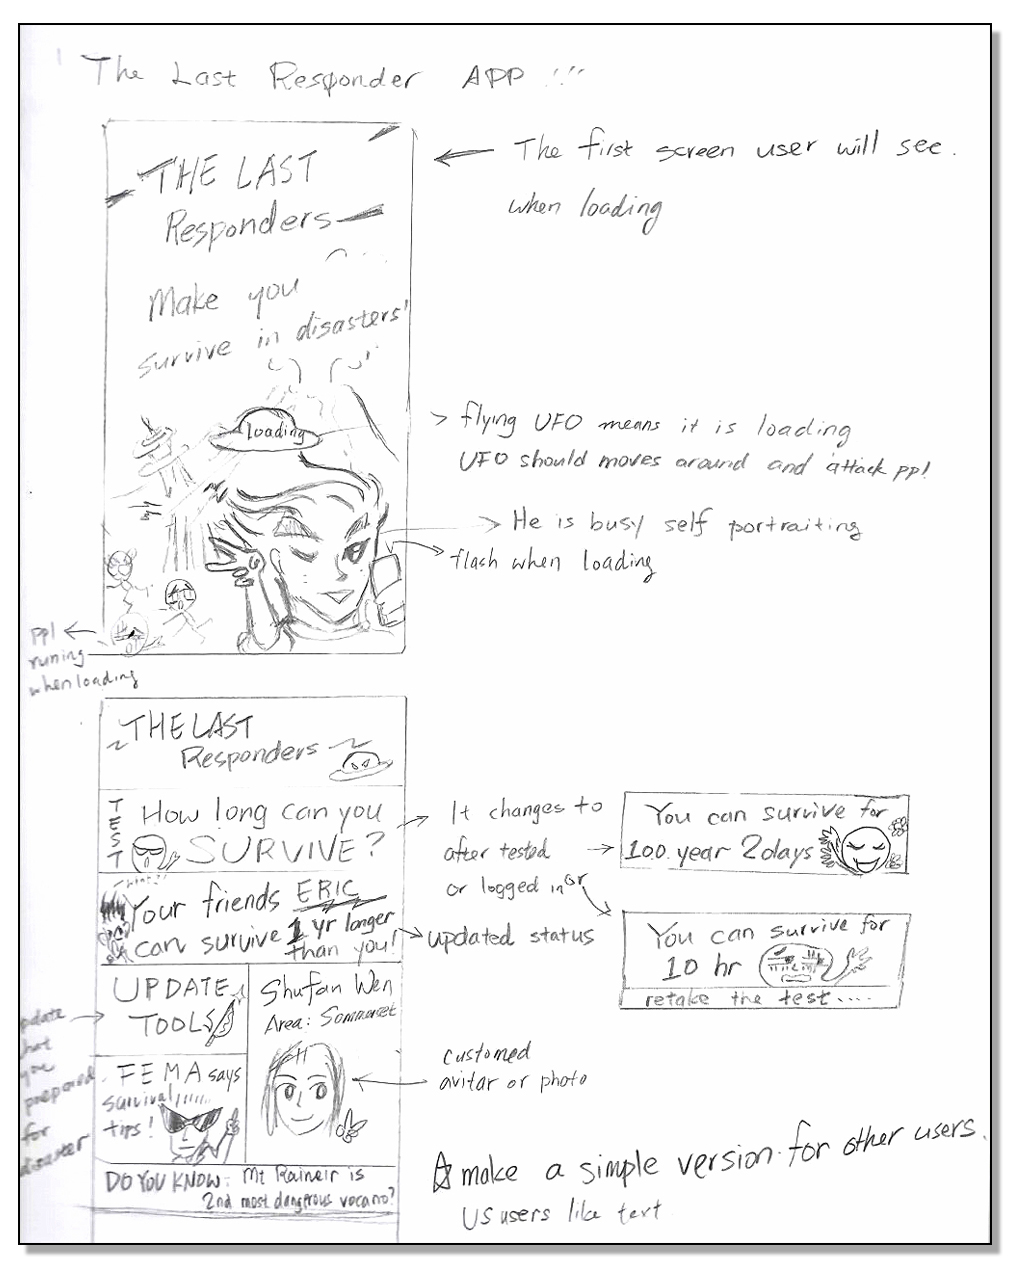 The Last Responder APP !!!
THE LAST
Responders
Make you
survive in disasters'
loading
The first screen user will see.
when loading
flying UFO means it is loading
UFO should moves around and attack pp!
He is busy self portraiting
flash when loading
ppl
runing
when loading
THE LAST
Responders
TEST
How long can you
SURVIVE?
It changes to
after tested
or logged in
or
You can survive for
100 year 2days
Your friends ERIC
can survive 1 yr longer
than you!
updated status
You can survive for
10 hr
retake the test....
UPDATE
TOOLS
Shufan Wen
Area: Sommerset
you
prepared
for
disaster
FEMA says
survival
tips!
customed
avitar or photo
DO YOU KNOW: Mt Raineir is
2nd most dangrous vocano?
make a simple version for other users.
US users like text